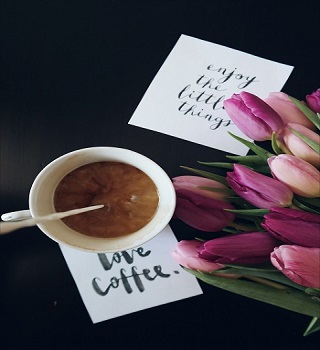 enjoy
the
little
things
love
coffee.